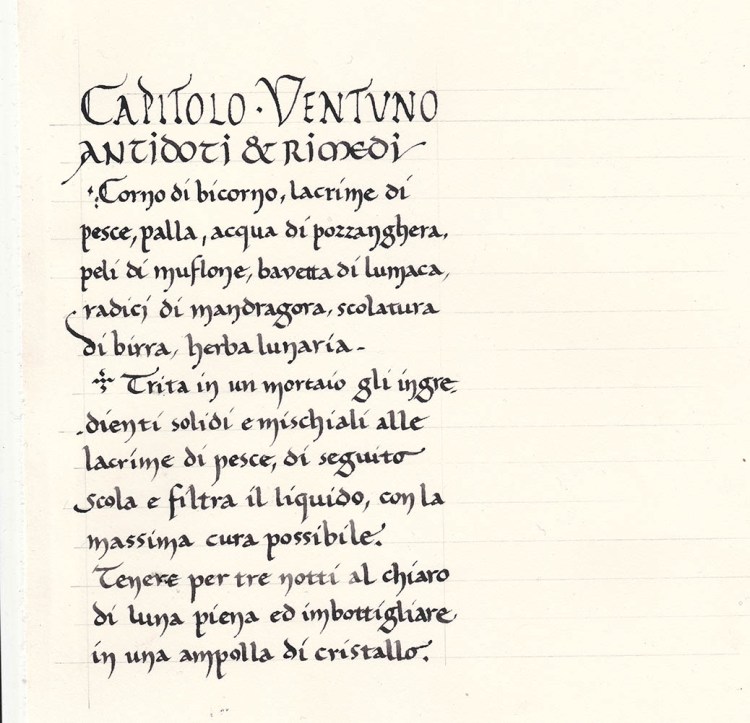 CAPITOLO · VENTVNO
ANTIDOTI & RIMEDI
Corno di bicorno, lacrime di
pesce, palla, acqua di pozzanghera,
peli di muflone, bavetta di lumaca,
radici di mandragora, scolatura
di birra, herba lunaria -
Trita in un mortaio gli ingre-
dienti solidi e mischiali alle
lacrime di pesce, di seguito
scola e filtra il liquido, con la
massima cura possibile.
Tenere per tre notti al chiaro
di luna piena ed imbottigliare
in una ampolla di cristallo.